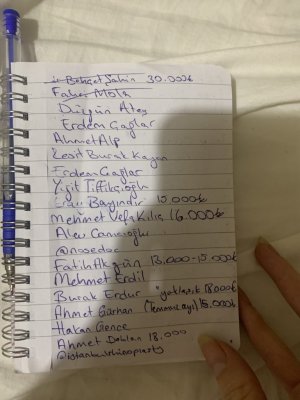 Behçet Şahin 30.000₺
Faher Mola
Düzgün Ateş
Erdem Çağlar
Ahmet Alp
Burak Kayan
Erdem Çağlar
Yiğit Tiftikçioğlu
Bayındır 15.000₺
Mehmet Vefa Kılıç 16.000₺
Alev Camcıoğlu
@nosedoc
Fatih Akgün 13.000-15.000₺
Mehmet Erdil
Burak Erdur "yaklaşık 18000₺
Ahmet Gürhan (Temmuz ayı) 15.000₺
Hakan Gence
Ahmet Doblan 18.000
@istanbulrhinoplasty